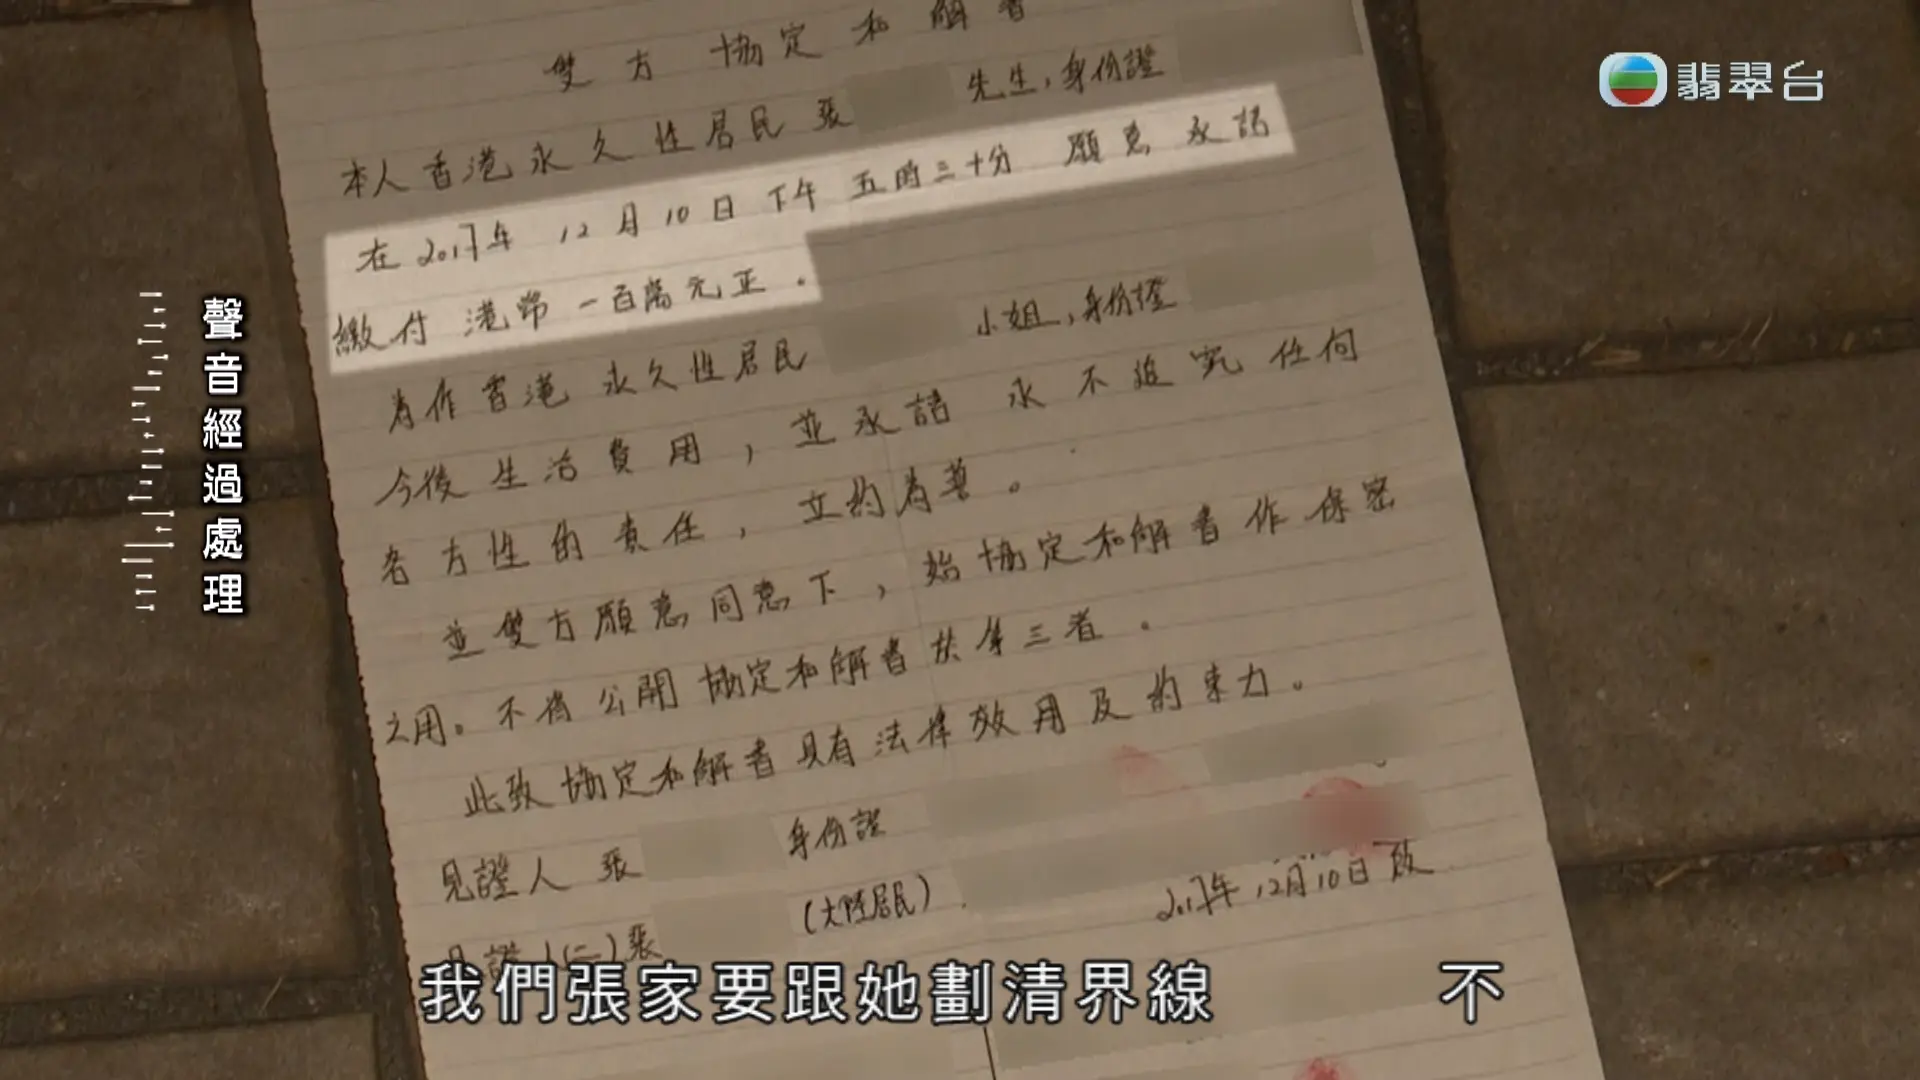 翡翠台
聲音經過處理
雙方協定和解書
本人香港永久性居民張 先生,身份證
在2017年 12月10日下午 五時三十分 願意 承諾
繳付 港幣 一百萬元正。
為作香港 永久性居民 小姐,身份證
今後 生活費用,並承諾 永不追究任何
各方性的責任,立約為善。
並雙方願意同意下,始協定和解書作保密
之用。不得公開協定和解書於第三者。
此致協定和解書具有法律效用及約束力。
見證人 張 身份證
(大陸居民)
2017年12月10日啟
見證人(二)張
我們張家要跟她劃清界線 不